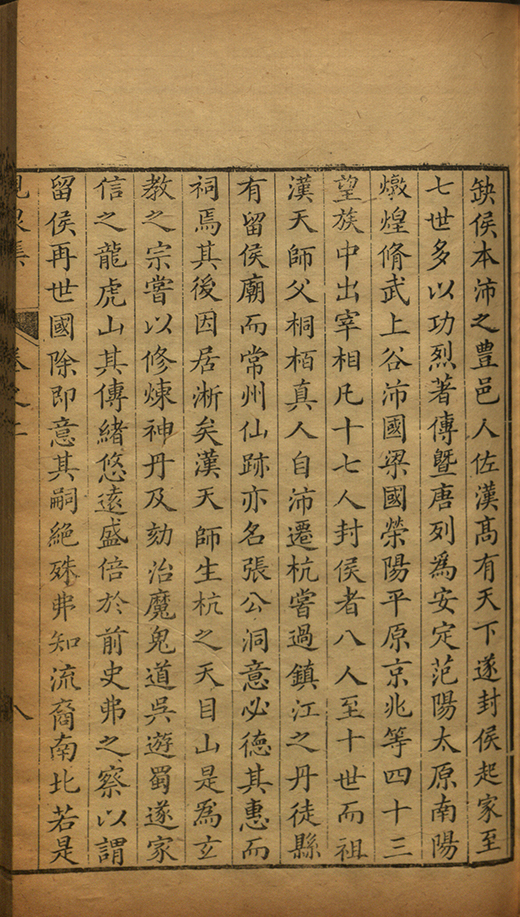 缺侯本沛之豊邑人佐漢髙有天下遂封侯起家至
七世多以功烈著傳曁唐列爲安定范陽太原南陽
燉煌脩武上谷沛國梁國榮陽平原京兆等四十三
望族中出宰相凡十七人封侯者八人至十世而祖
漢天師父桐栢真人自沛遷杭嘗過鎮江之丹徒縣
有留侯廟而常州仙跡亦名張公洞意必德其惠而
祠焉其後因居淅矣漢天師生杭之天目山是爲立
教之宗嘗以修煉神丹及劾治魔鬼道吳遊蜀遂家
信之龍虎山其傳緒悠遠盛倍於前史弗之察以謂
留侯再世國除即意其嗣絕殊弗知流裔南北若是
集 卷之 八